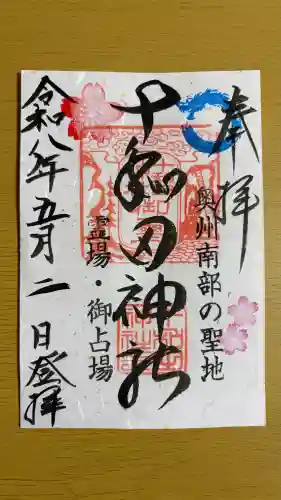 奉拝
奥州南部の聖地
十和田神社
霊場・御占場
令和八年五月二日登拝